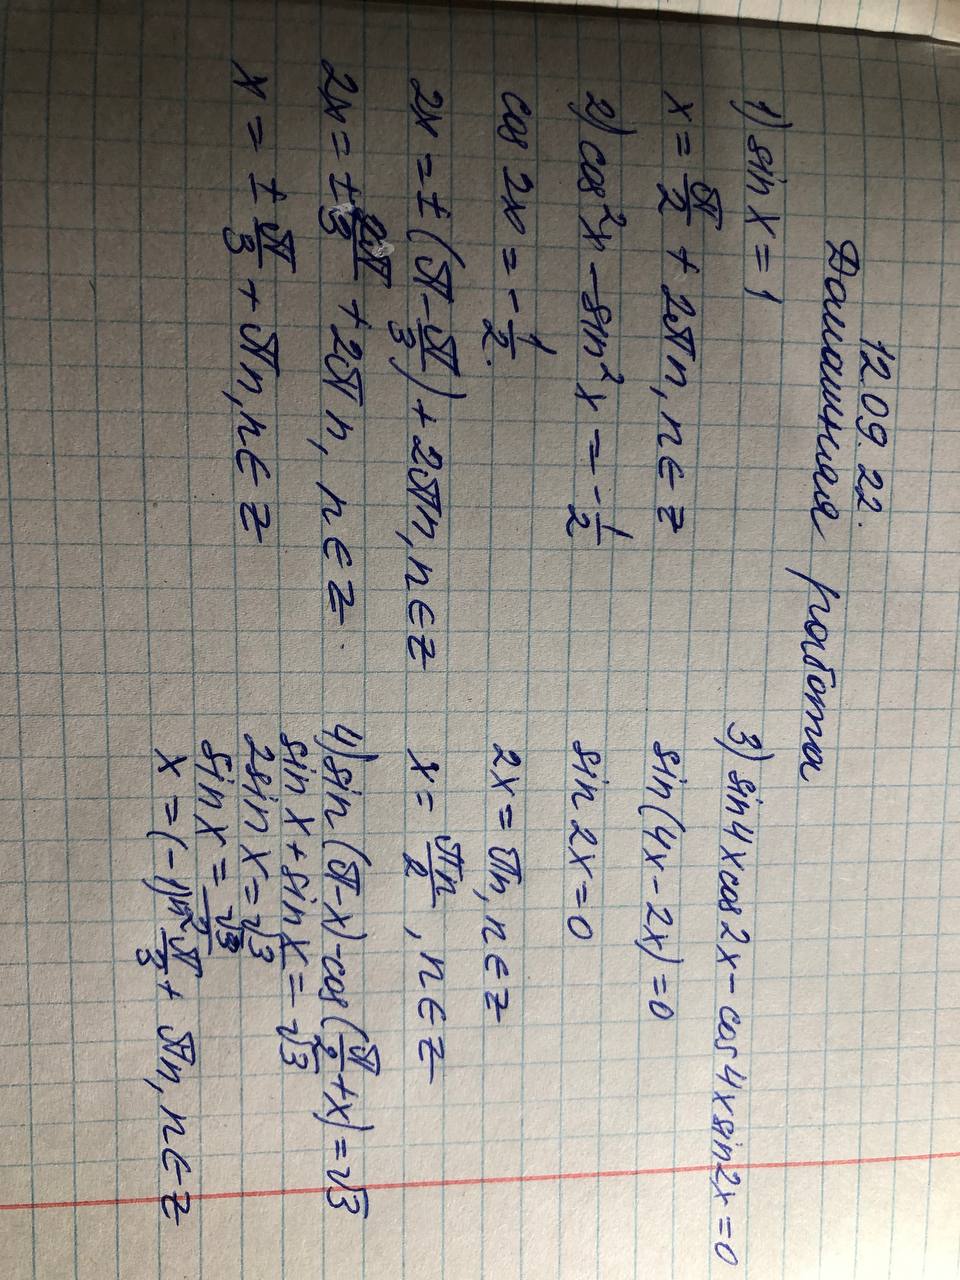 12.09.22.
Домашняя работа
1) sin x = 1
x = π/2 + 2πn, n ∈ z
2) cos²x - sin²x = -1/2
cos 2x = -1/2.
2x = ±(π - π/3) + 2πn, n ∈ z
2x = ± 2π/3 + 2πn, n ∈ z.
x = ± π/3 + πn, n ∈ z
3) sin4xcos2x - cos4xsin2x = 0
sin(4x - 2x) = 0
sin 2x = 0
2x = πn, n ∈ z
x = πn/2, n ∈ z
4) sin(π-x) - cos(π/2+x) = √3
sin x + sin x = √3
2sin x = √3
sin x = √3/2
x = (-1)ⁿ π/3 + πn, n ∈ z